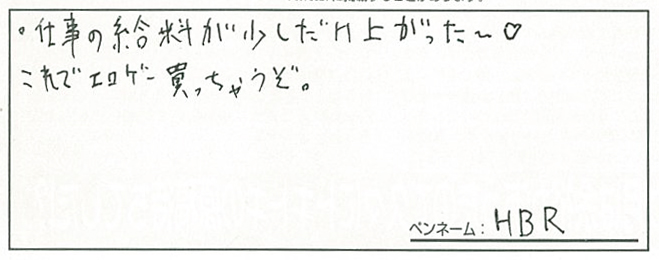 ・仕事の給料が少しだけ上がった～♡
これでエロゲー買っちゃうぞ。
ペンネーム：HBR